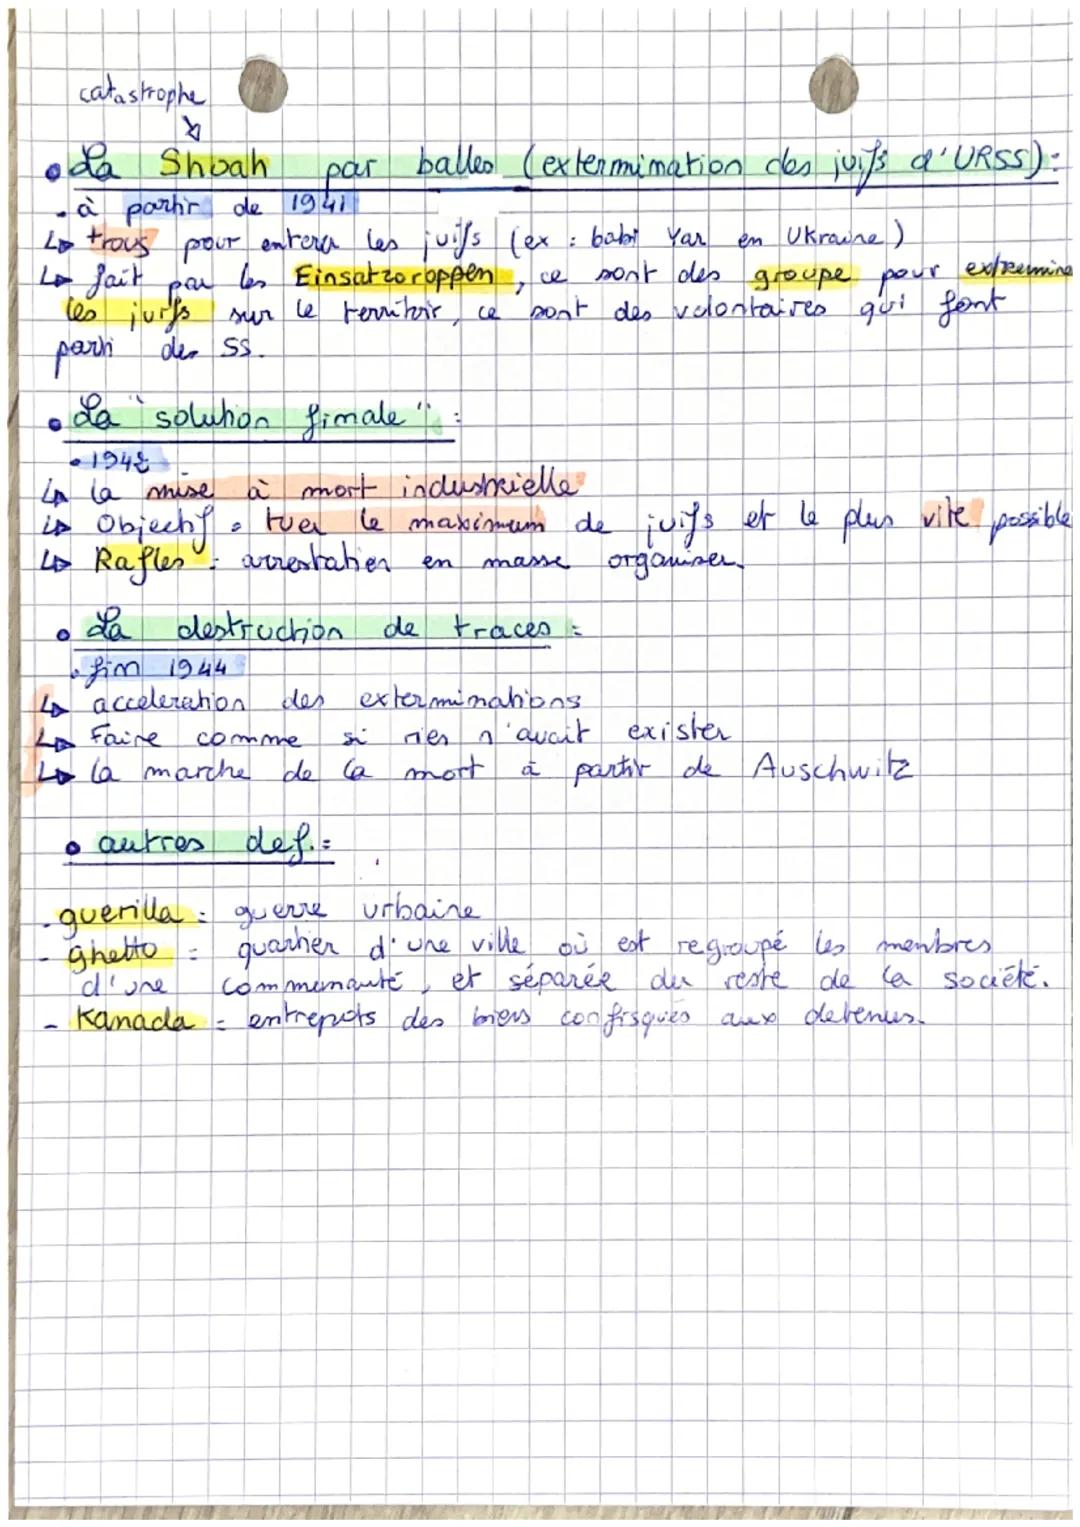 catastrophe
• La Shoah par balles (extermination des juifs d'URSS) :
- à partir de 1941
↳ trous pour enterer les juifs (ex : babi Yar en Ukraine)
↳ fait par les Einsatzoroppen, ce sont des groupe pour extremine
les juifs sur le territoir, ce sont des volontaires qui font
parti des SS.
• La "solution finale" :
• 1942
↳ la mise à mort industrielle
↳ Objectif = tuer le maximum de juifs et le plus vite possible
↳ Rafles : arrestation en masse organiser.
• La destruction de traces :
• fin 1944
↳ acceleration des exterminations
↳ Faire comme si rien n'avait exister
↳ la marche de la mort à partir de Auschwitz
• autres def. :
- guerilla : guerre urbaine
- ghetto : quartier d'une ville où est regroupé les membres
d'une communauté, et séparée du reste de la société.
- Kanada = entrepots des biens confisqués aux detenus.